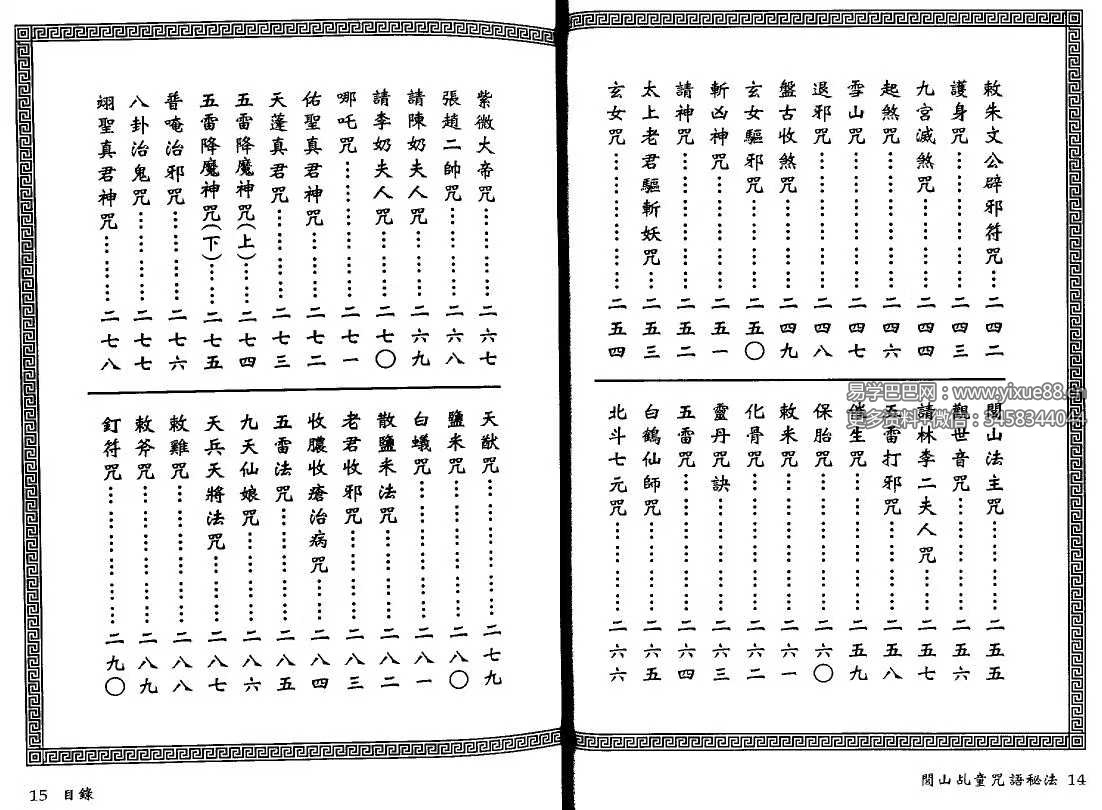 敕朱文公辟邪符咒……二四二
護身咒……二四三
九宮滅煞咒……二四四
起煞咒……二四六
雪山咒……二四七
退邪咒……二四八
盤古收煞咒……二四九
玄女驅邪咒……二五〇
斬凶神咒……二五一
請神咒……二五二
太上老君驅斬妖咒……二五三
玄女咒……二五四
閭山法主咒……二五五
觀世音咒……二五六
請林李二夫人咒……二五七
五雷打邪咒……二五八
催生咒……二五九
保胎咒……二六〇
敕米咒……二六一
化骨咒……二六二
靈丹訣……二六三
五雷咒……二六四
白鶴仙師咒……二六五
北斗七元咒……二六六
閭山乩童咒語秘法 14
紫微大帝咒……二六七
張趙二帥咒……二六八
請陳奶夫人咒……二六九
請李奶夫人咒……二七〇
哪吒咒……二七一
佑聖真君神咒……二七二
天蓬真君咒……二七三
五雷降魔神咒(上)……二七四
五雷降魔神咒(下)……二七五
普唵治邪咒……二七六
八卦治鬼咒……二七七
翊聖真君神咒……二七八
天猷咒……二七九
鹽米咒……二八〇
白蟻咒……二八一
散鹽米法咒……二八二
老君收邪咒……二八三
收膿收瘡治病咒……二八四
五雷法咒……二八五
九天仙娘咒……二八六
天兵天將法咒……二八七
敕雞咒……二八八
敕斧咒……二八九
釘符咒……二九〇
15 目錄
易学巴巴网：www.yixue88.cn
更多资料+微信：